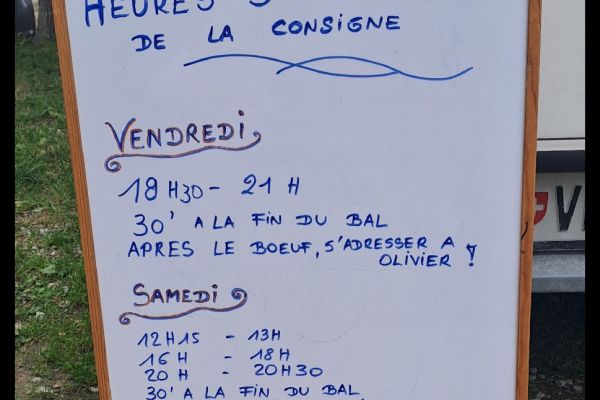 HEURES
DE LA CONSIGNE
VENDREDI
18H30 - 21H
30' A LA FIN DU BAL
APRES LE BOEUF, S'ADRESSER A
OLIVIER !
SAMEDI
12H15 - 13H
16H - 18H
20H - 20H30
30' A LA FIN DU BAL